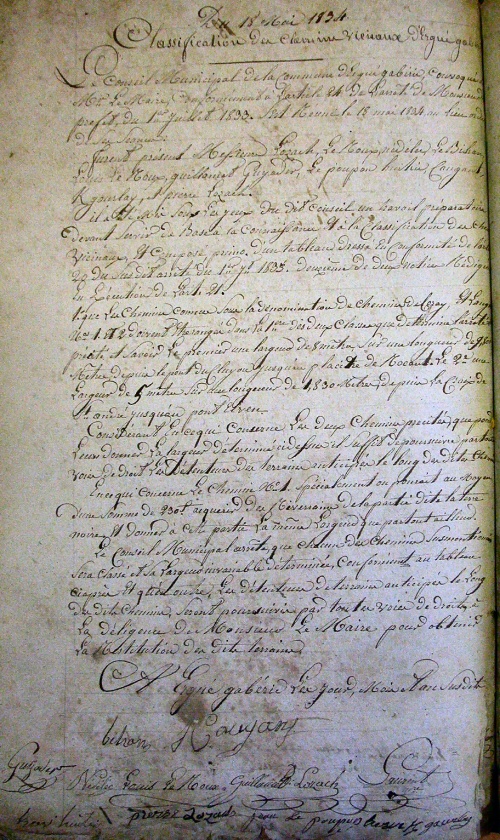 Du 18 Mai 1834
Classification des chemins vicinaux d'Ergué gabéric
Le Conseil Municipal de la Commune d'Ergué gabéric, convoqué
Mr. Le Maire, conformément à l'article 24 de l'arrêté de Monsieur
préfet, du 1er Juillet 1833. s'est Réunie le 18 mai 1834 au lieu
de ses séances.
furent présent Messieurs Lozach, Le Roux, Le Bihan
Louis Le Roux, guillaume Guyader, Le poupon huitric Caugant
R gourlay, et pierre Lozach.
il a été Mis sous les yeux du dit conseil un travail préparatoire
devant servir de Base à la Connaissance et à la Classification des Che
Vicinaux, et Composé primo. d'un tableau dressé en Conformité de l'art
20 du susdit arrêté du 1er Jt 1833. Deuxième de deux notices Rédigées
en Exécution de l'art. 21.
que les Chemins connus sous la dénomination de Chemin de
No. 1 & 2 doivent être rangés dans la 1ère des deux Classes que détermine l'arrêté
précité, et Savoir Le premier une largeur de 8 mètres sur une longueur de
Mètres depuis le pont du jusqu'au placitre de Le 2e une
Largeur de 5 mètres sur une longueur de 1,830 Mètres, depuis La Croix de
St andré jusqu'au pont
Considérant En ce qui Concerne Les deux Chemins précités, que pour
Leur donner La largeur déterminée ci dessus, il suffit de poursuivre par toute
voie de droit Les Détenteurs des terrains anticipés le long des dits Chemins
En ce qui Concerne Le Chemin No. 1. Spécialement on pourrait au moyen
d'une somme de 200f acquérir du de la partie dite la
noire, et donner à cette partie La même Largeur que partout ailleurs.
Le Conseil Municipal arrête, que chacun des Chemins susmentionnés
sera Classé et la Largeur invariable déterminée, Conformément au tableau
ci après Et qu'en outre, Les détenteurs de terrains anticipés le long
des dits Chemins, seront poursuivis par toutes voies de droits, à
La diligence de Monsieur Le Maire pour obtenir
La Restitution des dits terrains.
A Ergué gabéric Les Jour, Mois et an susdits
bihan Caugant
Guyader Louis Le Roux, Guillaume Lozach Laurent
pierre Lozach jean le poupon